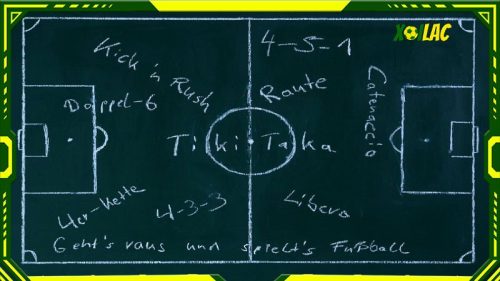 XOILAC
4-5-1
Kick'n Rush
Raute
Doppel-6
Catenaccio
Tiki Taka
4er-Kette
4-3-3
Libero
Geht's raus und spielt's Fußball